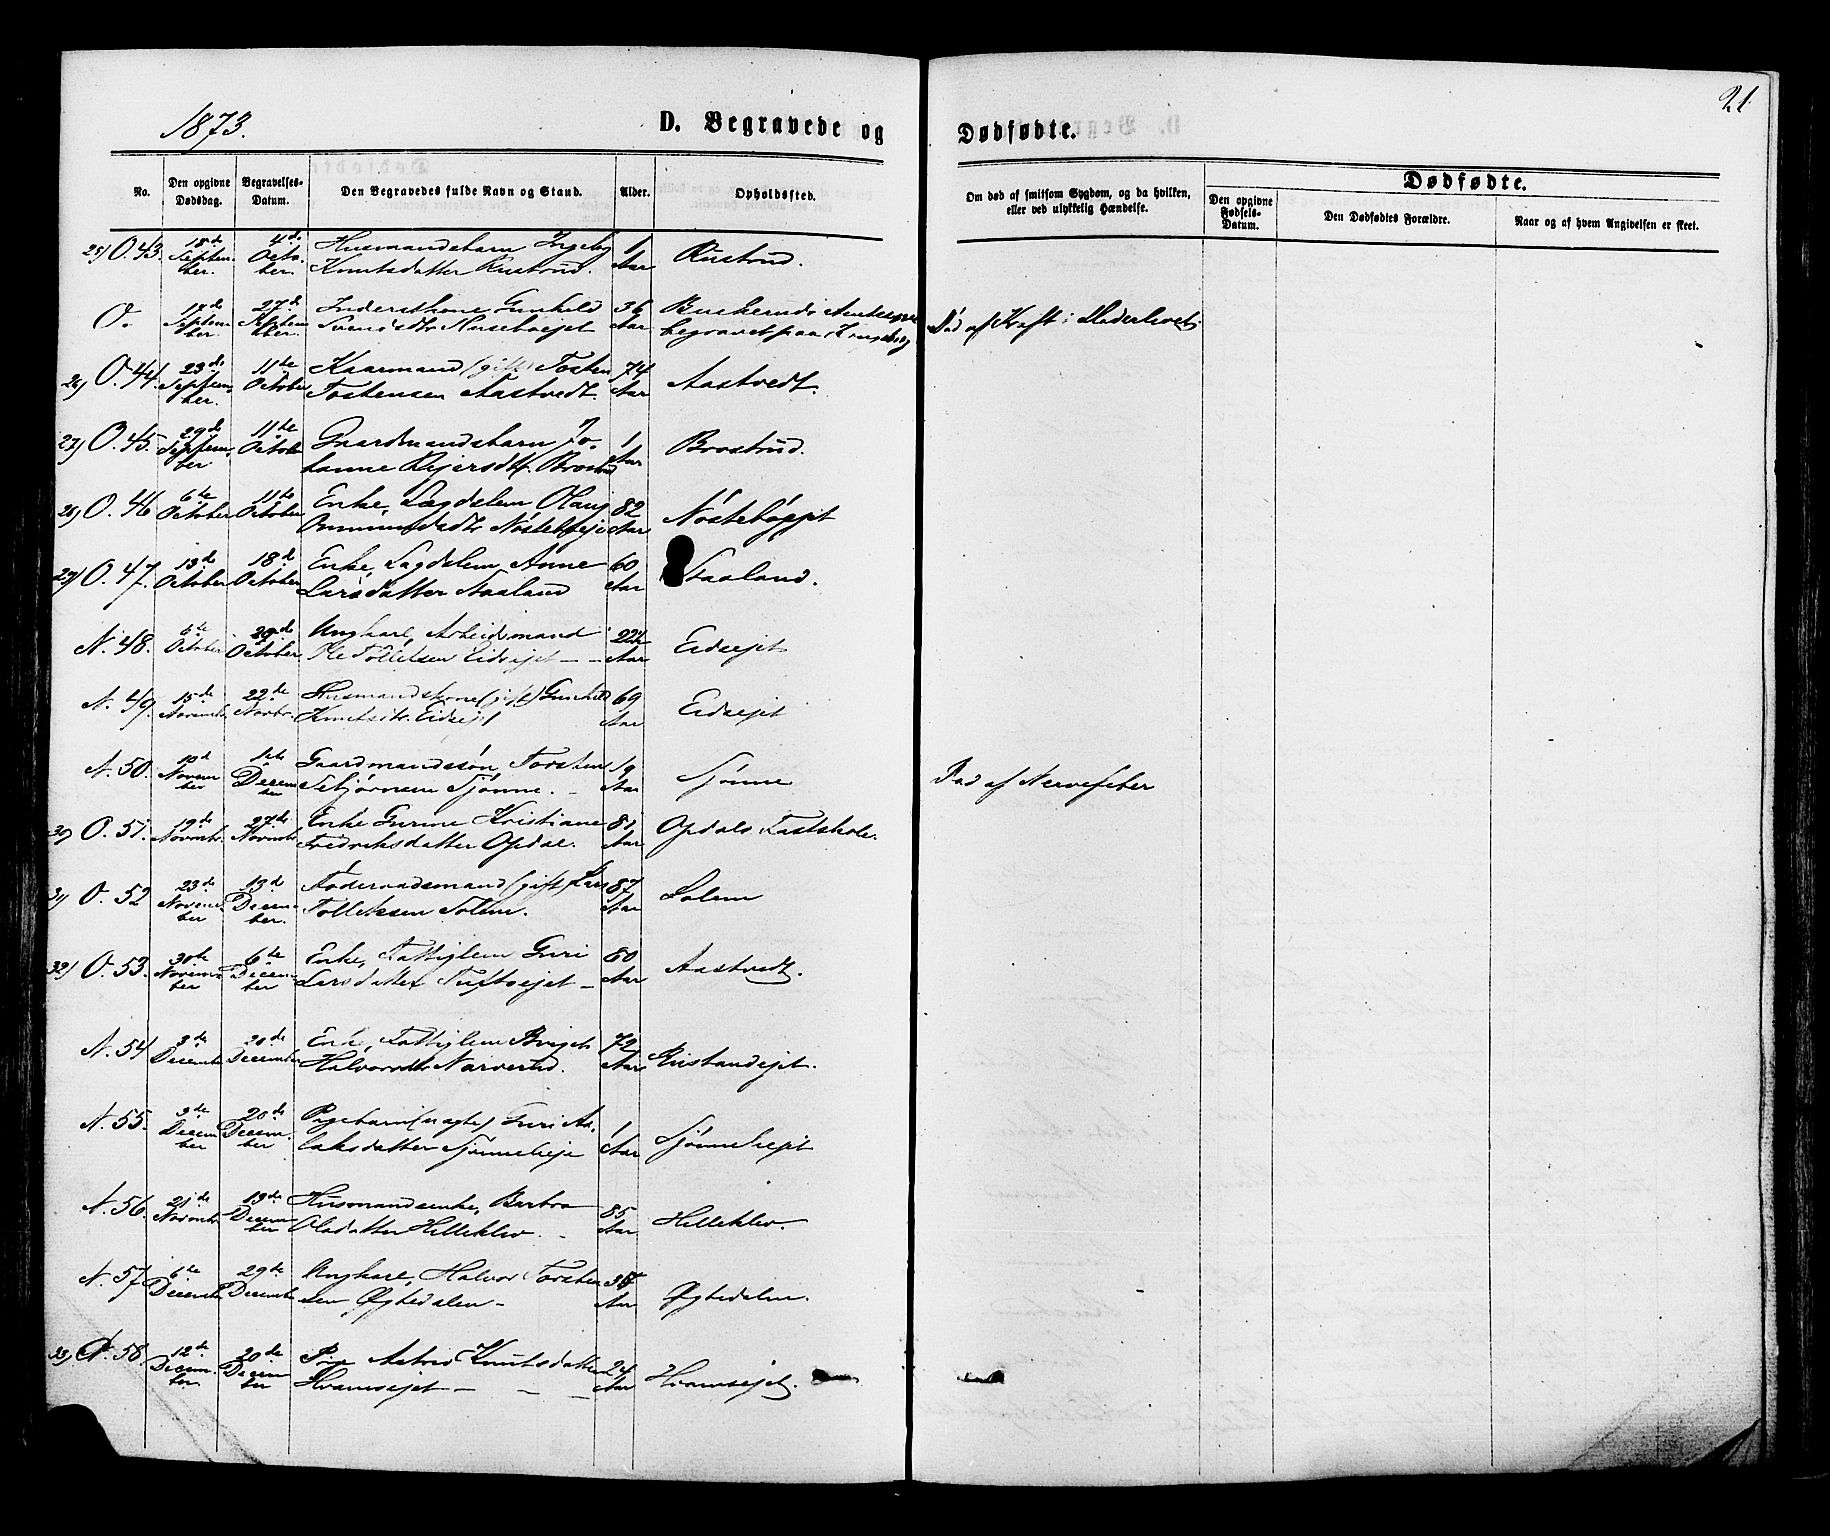 1873.
D. Begravede og
Dødfødte.
21
No.
Den opgivne Dødsdag.
Begravelses-Datum.
Den Begravedes fulde Navn og Stand.
Alder.
Opholdssted.
Om død af smitsom Sygdom, og da hvilken, eller ved ulykkelig Hændelse.
Dødfødte.
Den opgivne Fødsels-Datum.
Den Dødfødtes Forældre.
Naar og af hvem Angivelsen er skeet.
25) O. 43. 18de September. 4de October. Husmandsbarn Ingebg Knutsdatter Rustrud. 1 Aar Rustrud.
O. 17de September. 27de September. Inderstkone Gunhild Svensdtr 36 Aar begravet paa Kongsberg Død af Kræft i Moderlivet
26) O. 44. 23de September. 11te October Kaarmand (gift) Tosten Tostensen Aastvedt. 74 Aar Aastvedt.
27) O. 45. 29de September 11te October Gaardmandsbarn Johanne Rejersdtr. Brostrud 1 Aar Brostrud.
28) O. 46 6te October 11te October Enke, Lægdslem Olaug 82 Aar Nöstebögejt
29) O. 47. 13de October 18de October Enke, Lægdslem Anne Larsdatter Staaland 60 Aar Staaland.
N. 48. 6te October 29de October Ungkarl, Arbeidsmand Ole Tollefsen Eidsejet 22½ Aar Eidsejet
N. 49. 15de Novembr. 22de Novbr. Husmandskone (gift) Gunhild Knutsdtr. Eidsejt 69 Aar Eidsejet
N. 50. 10de November 1ste December Gaardmandssön, Torsten Sebjörnsen Sjönne. 19 Aar Sjönne Død af Nervefeber
30) O. 51. 19de Novembr. 27de Novembr. Enke Gurine Kristiane Fredriksdatter Opdal. 81 Aar Opdals Fastskole.
31) O. 52 23de November 13de December. Föderaadsmand (gift) Lars Tollefssen Solem. 87 Aar Solem
32) O. 53. 30te November 6te December Enke, Fattiglem Guri Larsdatter Tuftesejet 80 Aar Aastvedt.
N. 54 3de December 20de December Enke, Fattiglem Birgit Halvorsdtr Narverud. 72 Aar
N. 55. 9de December 20de December Pigebarn (uægte) Guri Aslaksdatter Sjönneliejе 1 Aar Sjönnelieejt
N. 56. 21de Novembr 13de December Husmandsenke, Barbra Olsdatter Helleklev. 85 Aar Helleklev.
N. 57 6te December 29de December Ungkarl, Halvor Torstensen Øghedalen 35 Aar Øghedalen.
33) O. 58. 12te December 20de December Pige Astrid Knutsdatter Hvamsejet 24 Aar Hvamsejet.